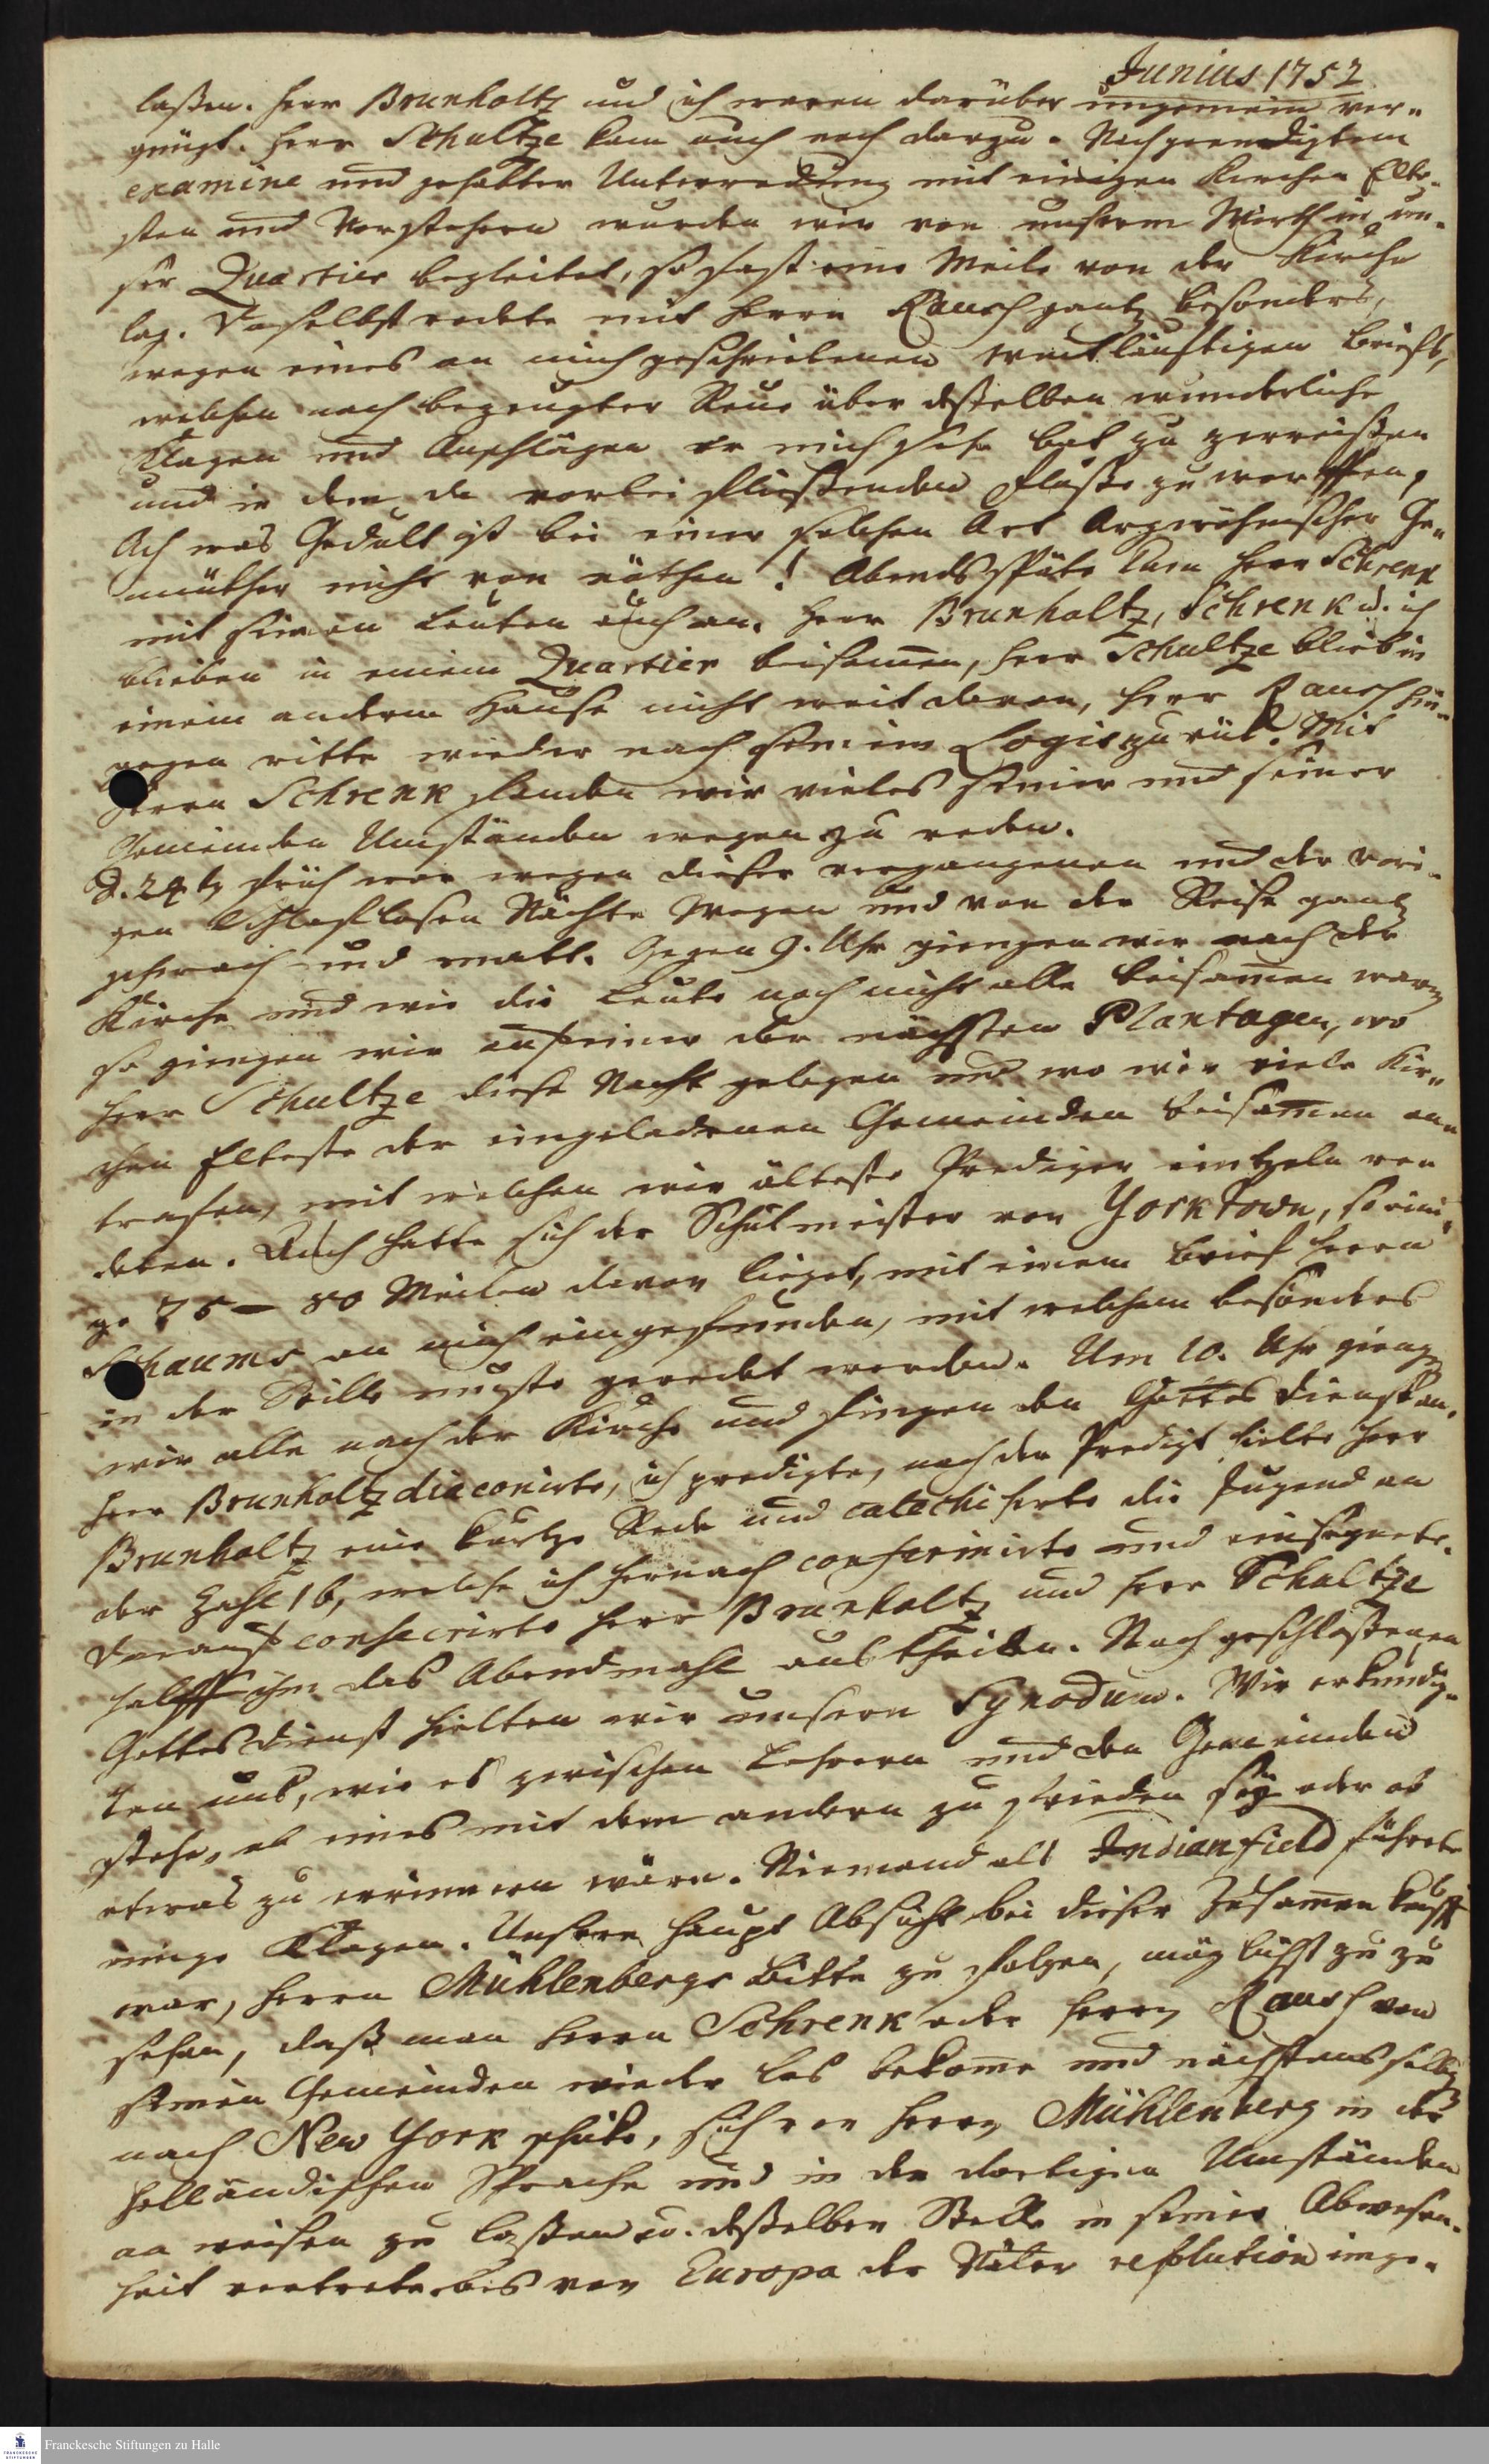 Junius 1752
laßen. Herr Brunholtz und ich waren darüber ungemein ver-
gnügt. Herr Schultze kam auch noch darzu. Nach geendigtem
examine und gehabter Unterredung mit einigen Kirchen Elte-
sten und Vorstehern wurden wir von unserm Wirth in un-
ser Quartier begleitet, so fast eine Meile von der Kirche
lag. Daselbst redete mit Herrn Rausch gantz besonders,
wegen eines an mich geschriebenen weitläuftigen Briefs,
welchen nach bezeugter Reue über deßelben wunderliche
Klagen und Anschlägen er mich sehr bat zu zerreißen
und in den da vorbei fließenden Fluße zu werffen,
Ach was Gedult ist bei einer solchen Art Argwöhnischer Ge-
müther nicht von nöthen! Abends späte kam Herr Schrenk
mit seinen Leuten auch an. Herr Brunholtz, Schrenk u. ich
blieben in einem Quartier beisamen, Herr Schultze blieb in
einem andern Hause nicht weit davon, Herr Rausch hin-
gegen ritte wieder nach seinem Logis zurük. Mit
Herrn Schrenk fanden wir vieles seiner und seiner
Gemeinden Umständen wegen zu reden.
d. 24 tz früh war wegen dieser vergangenen und der vori-
gen Schlaflosen Nächte wegen und von der Reise gantz
schwach und matt. Gegen 9. Uhr giengen wir nach der
Kirche und wie die Leute noch nicht alle beisamen waren
so giengen wir auf einer der nächsten Plantagen, wo
Herr Schultze diese Nacht gelegen und wo wir viele Kir-
chen Elteste der eingeladenen Gemeinden beisamen an-
trafen, mit welchen wir älteste Prediger eintzeln re-
deten. Auch hatte sich der Schulmeister von Yorktown, so eini-
ge 75 - 80 Meilen davon lieget, mit einem Brief Herrn
Schaums an mich eingefunden, mit welchem besonders
in der Stille muste geredet werden. Um 10. Uhr giengen
wir alle nach der Kirche und fingen den Gottesdienst an.
Herr Brunholtz diaconirte, ich predigte, nach der Predigt hielte Herr
Brunholtz eine kurtze Rede und catechisirte die Jugend an
der Zahl 16, welche ich hernach confirmirte und einsegnete.
Darauf consecrirte Herr Brunholtz und Herr Schultze
halff ihm das Abendmahl austheilen. Nach geschloßenen
Gottesdienst hielten wir unsern Synodum. Wir erkundig-
ten uns, wie es zwischen Lehrern und den Gemeinden
stehe, ob eines mit dem andern zu frieden sey oder ob
etwas zu errinnern wäre. Niemand als Indianfield führete
einige Klagen. Unsere Haupt Absicht bei dieser Zusamenkunfft
war, Herrn Mühlenbergs Bitte zu folgen, möglichst zu zu
sehen, daß man Herrn Schrenk oder Herrn Rausch von
seinen Gemeinden wieder los bekome und nächstens selbigen
nach New York schike, sich von Herrn Mühlenberg in der
holländischen Sprache und in den dortigen Umständen
an weisen zu laßen u. deßelben Stelle in seiner Abwesen-
heit vertrete, bis von Europa der Väter resolution einge-
Franckesche Stiftungen zu Halle